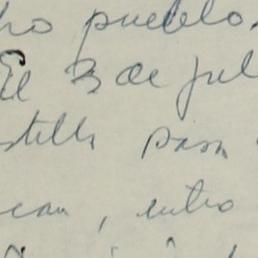 ho pueblo.
El 3 de jul
stilla pasa
can, entro